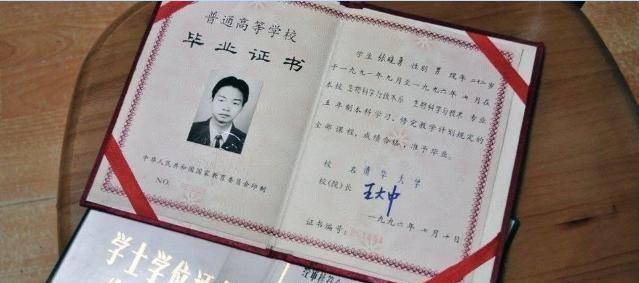 普通高等学校
毕业证书
中华人民共和国国家教育委员会印制
NO.
学生 张晓勇 性别 男 现年 二十二 岁
于一九九一年九月至一九九六年 七 月在
本校 生物科学与技术系 生物科学与技术 专业
五 年制本科学习，修完教学计划规定的
全部课程，成绩合格，准予毕业。
校 名 清华大学
校(院)长 王大中
一九九六年 七 月 十 日
证书编号：
学士学位证